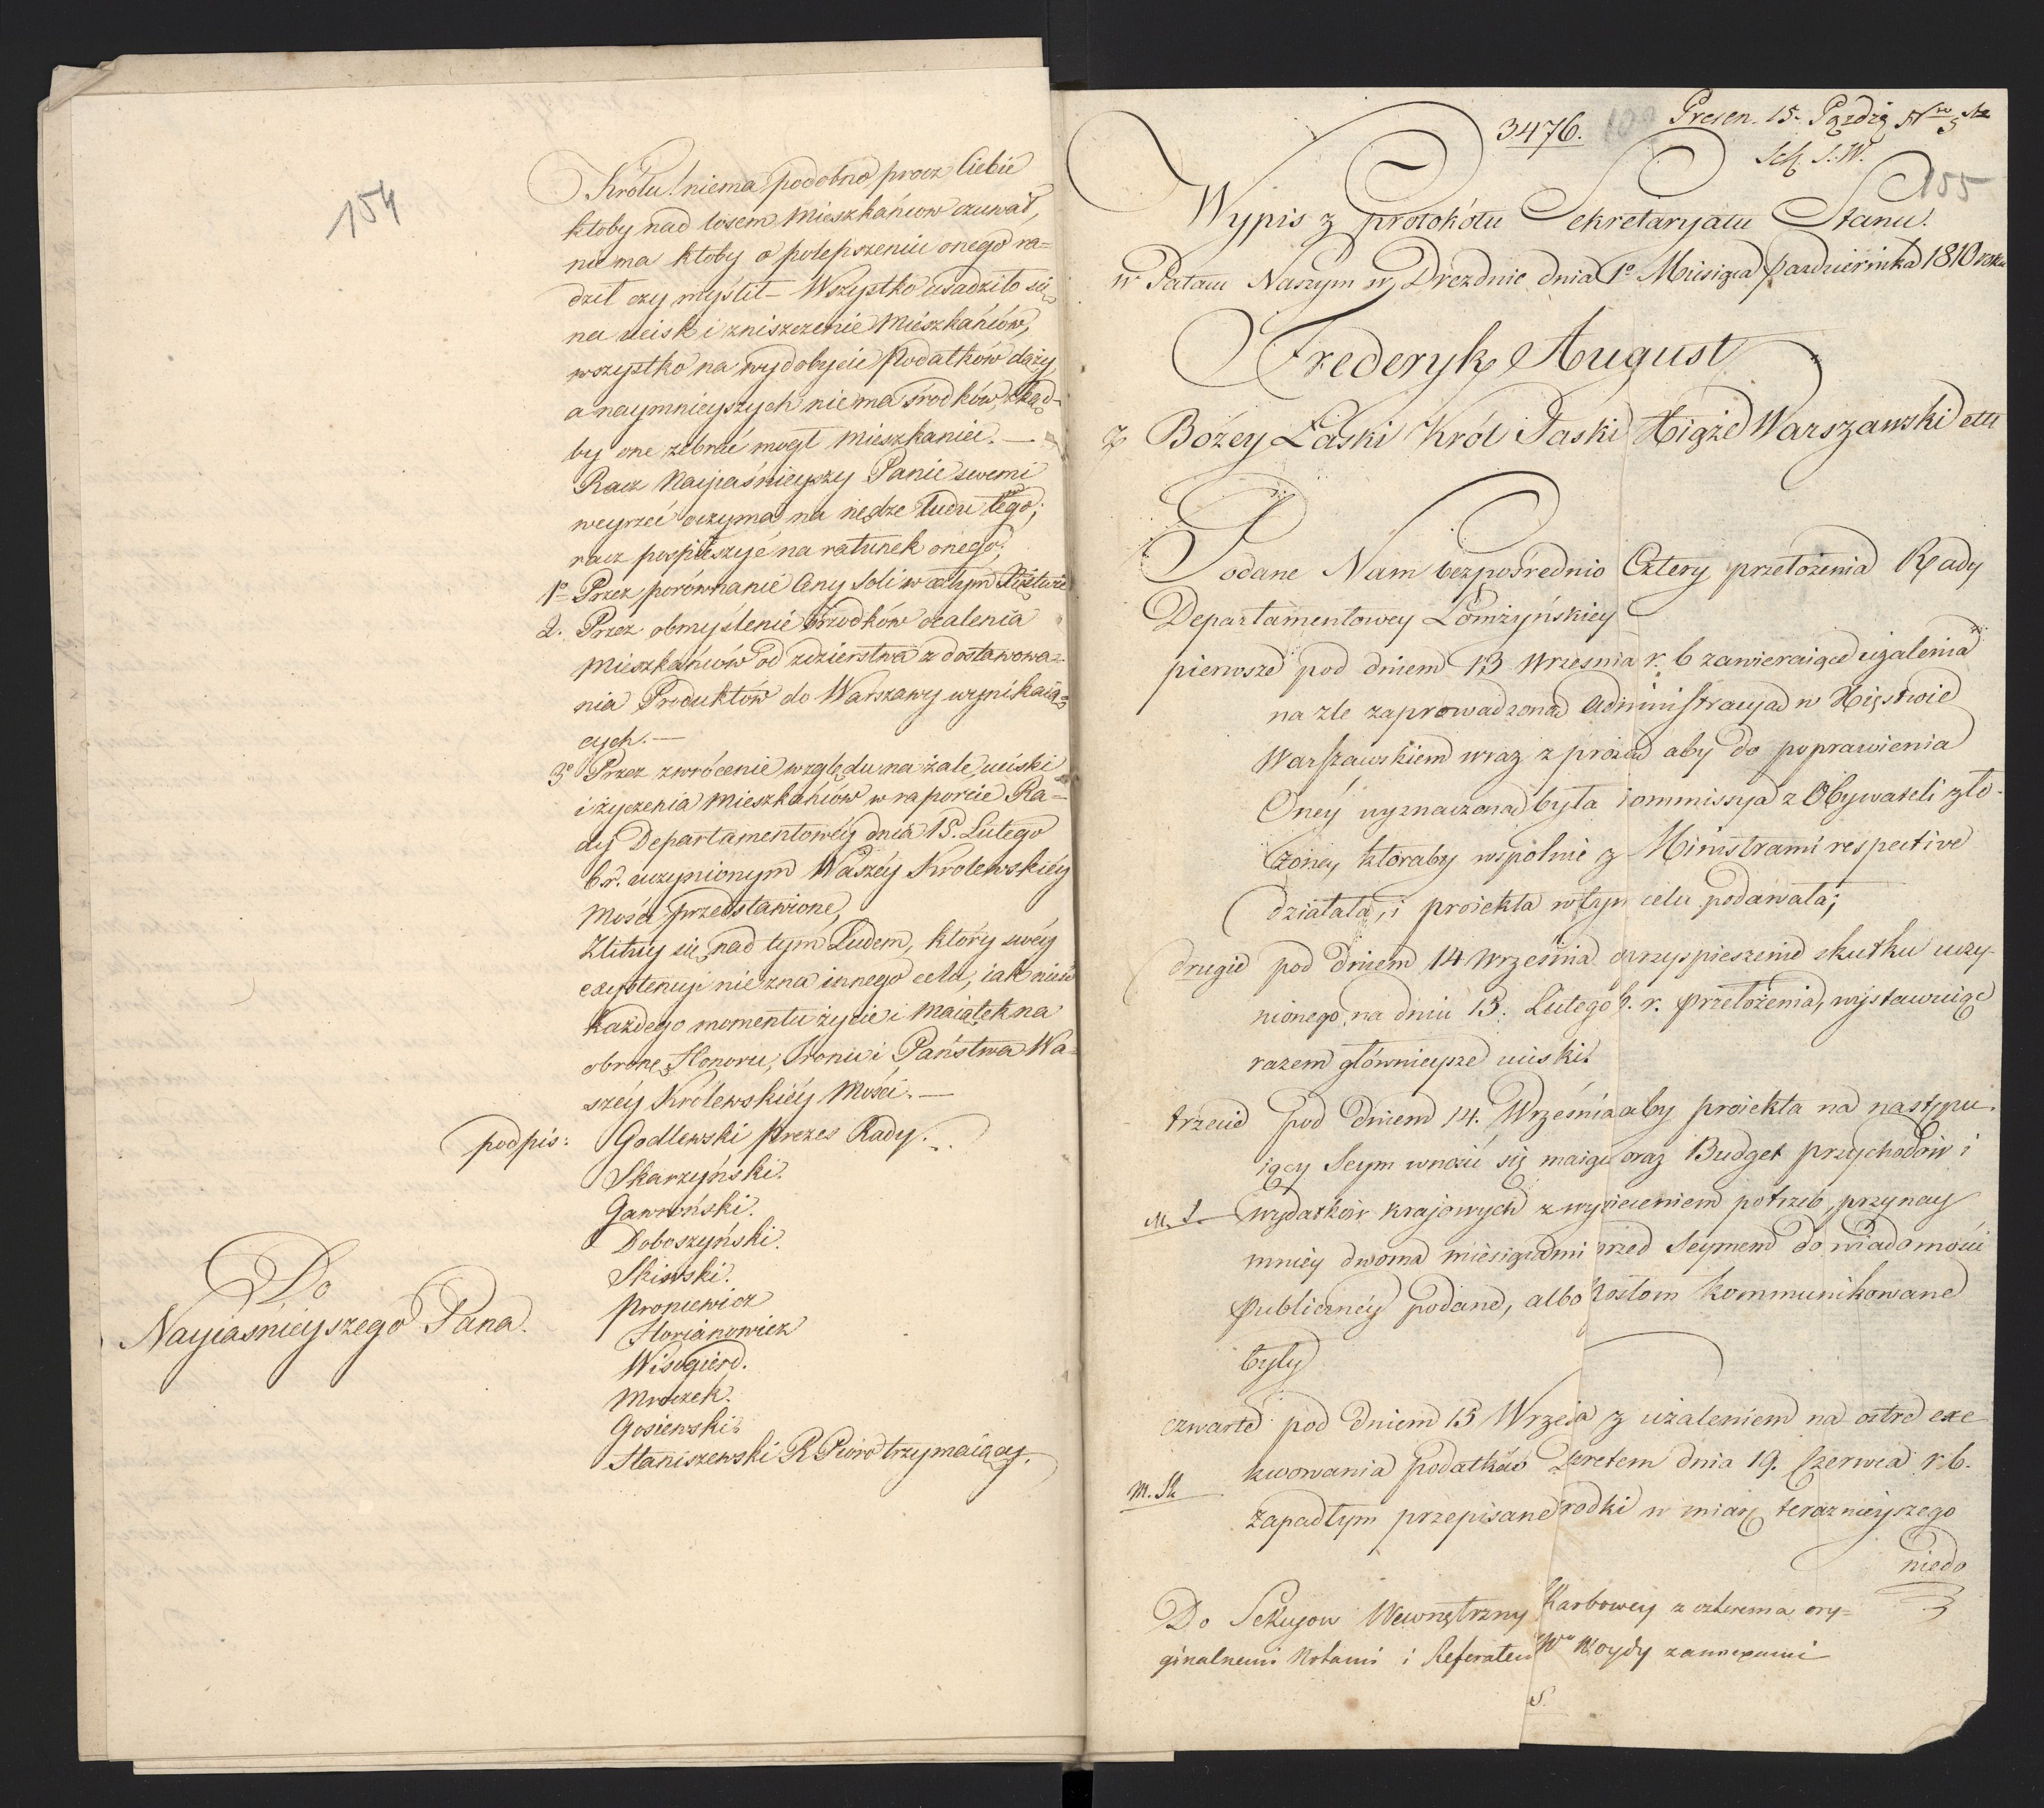 154
Królu! niema podobno procz Ciebie
ktoby nad losem Mieszkańcow czuwał,
niema ktoby o polepszeniu onego ra=
dził czy myślił – Wszystko usadziło się
na ucisk i zniszczenie Mieszkańców,
wszystko na wydobycie Podatków dąży,
a naymnieyszych niema środków, zkąd=
by one zebrać mogł Mieszkaniec. —
Racz Nayjaśnieyszy Panie swemi
weyrzeć oczyma na nędze ludu tego;
racz pospieszyć na ratunek onego;
1º Przez porównanie Ceny Soli w całym
2. Przez obmyślenie śrzodków ocalenia
Mieszkańców od zdzierstwa z dostawowa=
nia Produktów do Warszawy wynikaią=
cych. —
3º Przez zwrócenie względu na żale, uciski
i życzenia Mieszkańców w raporcie Ra=
dy Departamentowéy dnia 15. Lutego
b. r. uczynionym Waszéy Królewskiéy
Mości przedstawione,
Zlituy się nad tym Ludem, który swéy
exystencyi nie zna innego celu, iak nieść
każdego momentu życie i maiątek na
obronę Honoru, Tronu i Państwa Wa=
széy Królewskiéy Mości. —
podpis: Godlewski Prezes Rady.
Skarzyński.
Gawroński.
Doboszyński.
Skiwski.
Proniewicz
Florianowicz
Wisogierd.
Mroczek.
Gosiewski.
Staniszewski R. Pióro trzymaiący.
Do
Nayiasnieyszego Pana.
3476. 100 Presen. 15. Paźdz
155
Wypis z protokółu Sekretaryatu Stanu.
w Pałacu Naszym w Dreźdnie dnia 1º Miesiąca Pazdziernika 1810 roku
Frederyk August
z Bożey Łaski Król Saski Xiąże Warszawski etc
Podane Nam bezpośrednio Cztery przełożenia Rady
Departamentowey Łomżyńskiey
pierwsze pod dniem 13 Wrzesnia r. b zawieraiące użalenia
na zle zaprowadzoną Administracyą w Xięstwie
Warszawskiem wraz z proźbą aby do poprawienia
Oney wyznaczoną była kommissya z Obywateli zło=
żona, któraby wspólnie z Ministrami respective
działała, i proiekta w tym celu podawała;
drugie pod dniem 14 września o przyspieszenie skutku uczy=
nionego na dniu 15. Lutego b. r. przełożenia, wystawuiąc
razem główniejsze uciski.
trzecie pod dniem 14. Września aby proiekta na następu=
iący Seym wnosić się maiące oraz Budget przychodów i
M. S. wydatków krajowych z wyrażeniem potrzeb, przynay
mniéy dwoma miesiącami przed Seymem do wiadomości
Publicznéy podane, albo Posłom kommunikowane
były
czwarte pod dniem 15 Wrześa z użaleniem na ostre exe
kwowania podatków Dekretem dnia 19. Czerwca r. b.
M. Sk
zapadłym przepisane srodki w miarę teraznieyszego
niedo
Do Sekcyow Wewnętrzny Skarbowey z czterema ory=
ginalnemi Notami i Referatem Wo Woydy z annexami
S.